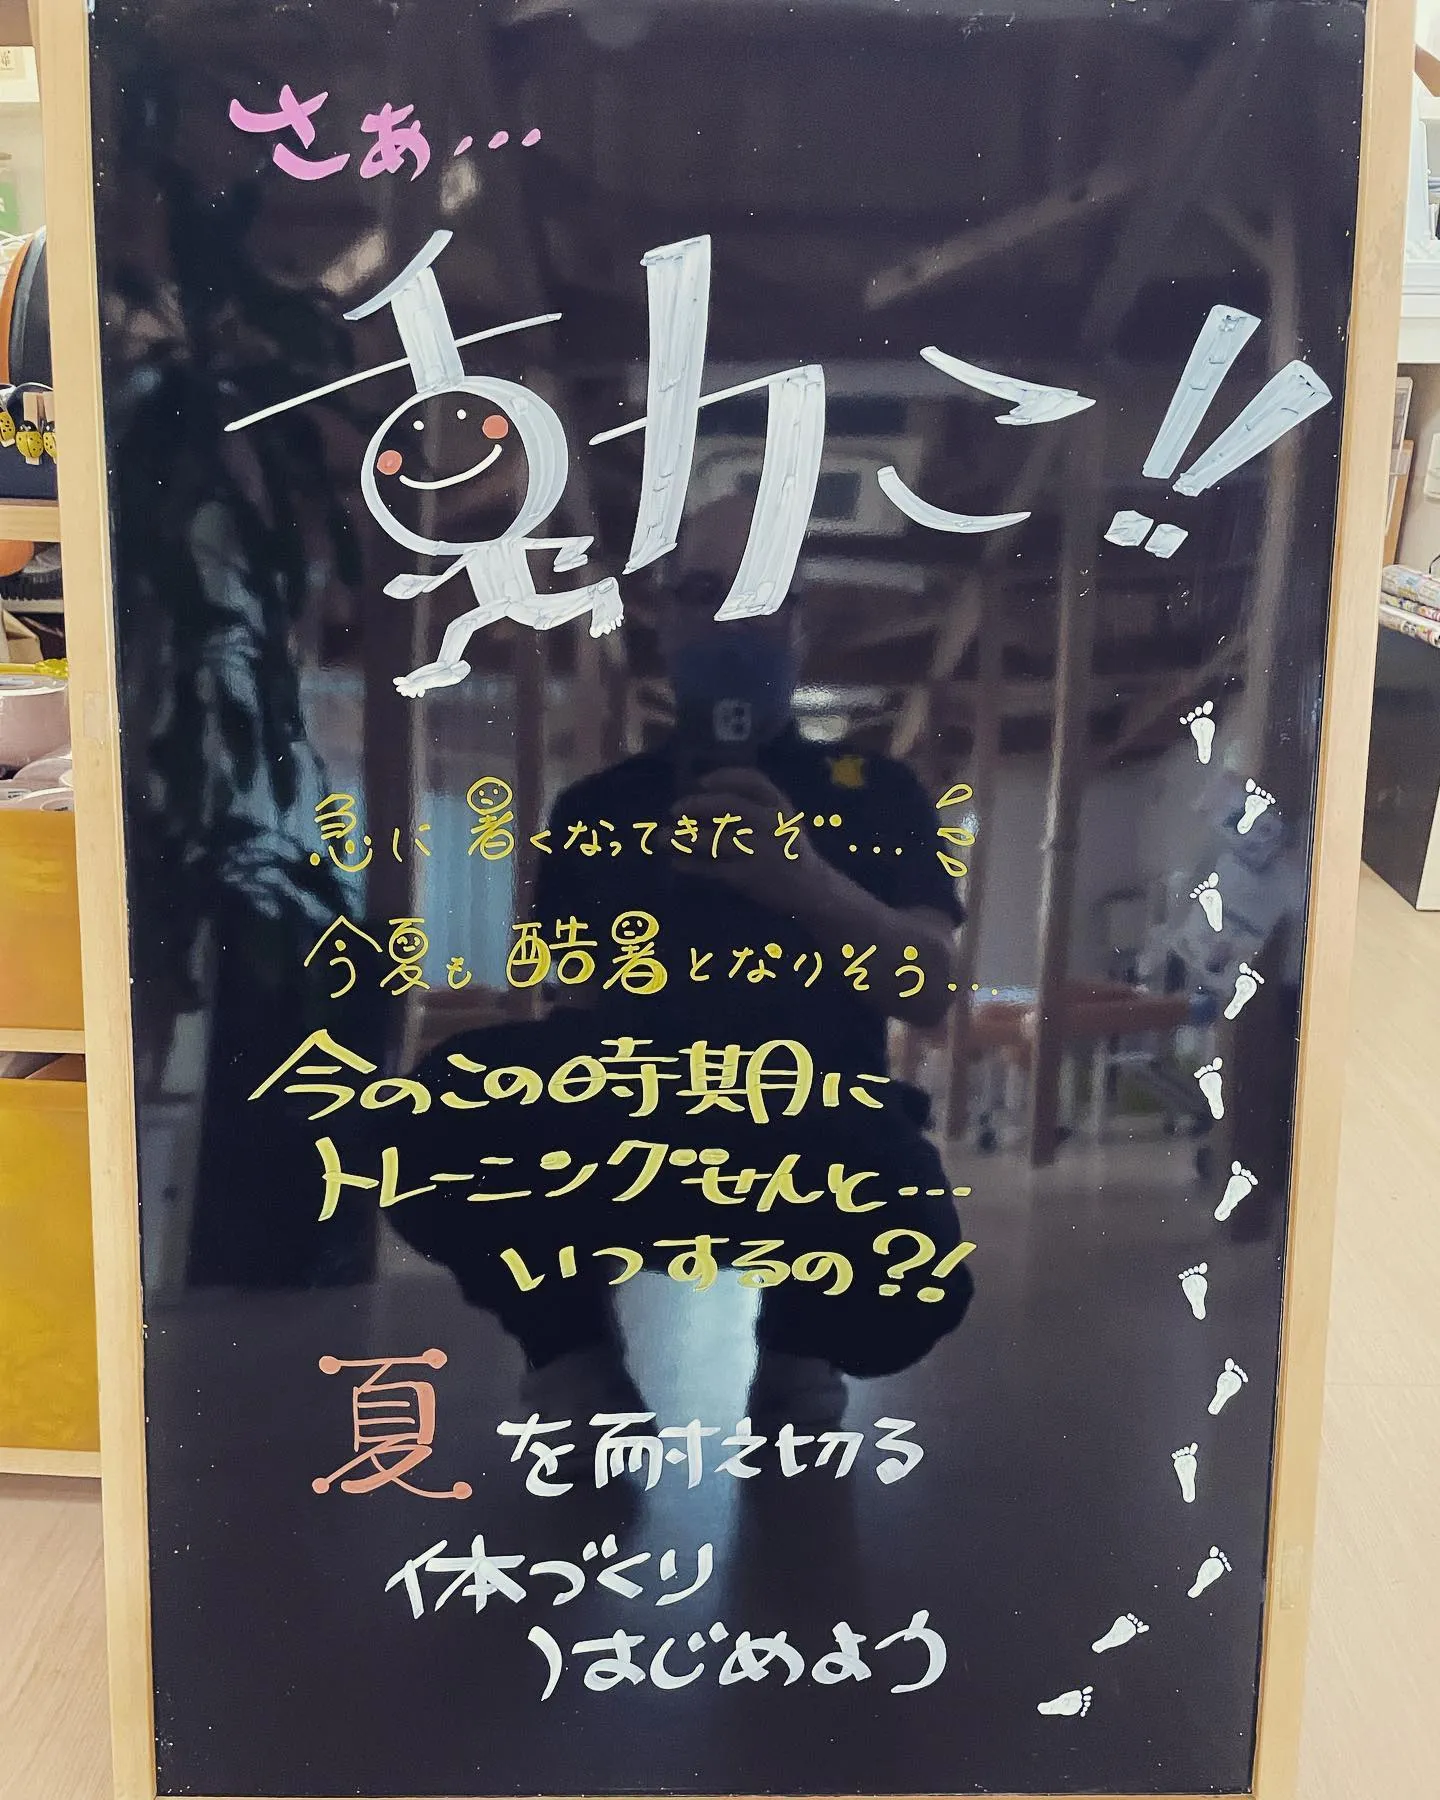 さぁ...
動こ!!
急に暑くなってきたぞ...
今夏も酷暑となりそう...
今のこの時期に
トレーニングせんと...
いつするの?!
夏を耐え切る
体づくり
はじめよう